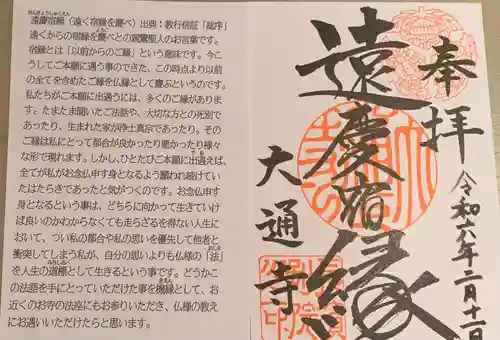 おんきょうしゅくえん
遠慶宿縁（遠く宿縁を慶べ）出典：教行信証「総序」
遠くからの宿縁を慶べとの親鸞聖人のお言葉です。
宿縁とは「以前からのご縁」という意味です。今こ
うしてご本願に遇う事のできた、この時点より以前
の全てを含めたご縁を仏縁として慶ぶというのです。
私たちがご本願に出遇うには、多くのご縁がありま
す。たまたま聞いたご法話や、大切な方との死別で
あったり、生まれた家が浄土真宗であったり。その
ご縁は私にとって都合が良かったり悪かったり様々
な形で現れます。しかし、ひとたびご本願に出遇えば、
全てが私がお念仏申す身となるよう願われ続けてい
たはたらきであったと気がつくのです。お念仏申す
身となるという事は、どちらに向かって生きていけ
ば良いのかわからなくても走らざるを得ない人生に
おいて、つい私の都合や私の思いを優先して他者と
衝突してしまう私が、自分の思いよりも仏様の「法」
を人生の道標として生きるという事です。どうかこ
の法語を手にとっていただけた事を機縁として、お
近くのお寺の法座にもお参りいただき、仏様の教え
にお遇いいただけたらと思います。
奉拝
令和六年二月十一日
遠慶宿縁
大通寺